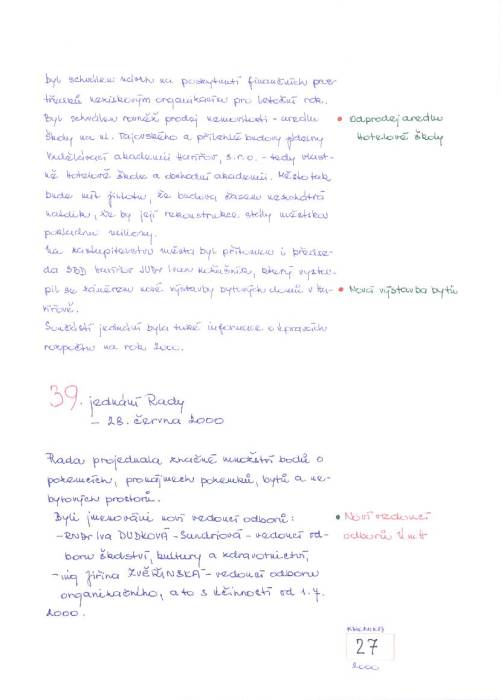 byl schválen návrh na poskytnutí finančních pros-
tředků neziskovým organizacím pro letošní rok.
Byl schválen rovněž prodej nemovitosti - areálu
školy na ul. Tajovského a přilehlé budovy jídelny
Vzdělávací akademii Havířov, s.r.o. - tedy vlast-
ně Hotelové škole a obchodní akademii. Město tak
bude mít jistotu, že budova časem nezchátrá
natolik, že by její rekonstrukce stály městskou
pokladnu miliony.
Na zastupitelstvu města byl přítomen i předse-
da SBD Havířov JUDr Ivan , který vystou-
pil se záměrem nové výstavby bytových domů v Ha-
vířově.
Součástí jednání byla také informace o úpravách
rozpočtu na rok 2000.
• Odprodej areálu
Hotelové školy
• Nová výstavba bytů
39. jednání Rady
- 28. června 2000
Rada projednala značné množství bodů o
pozemcích, pronájmech pozemků, bytů a ne-
bytových prostorů.
Byli jmenováni noví vedoucí odborů:
- RNDr Iva DUDKOVÁ - Sundriová - vedoucí od-
boru školství, kultury a zdravotnictví,
- ing Jiřina ZVĚŘINSKÁ - vedoucí odboru
organizačního, a to s účinností od 1.7.
2000.
• Noví vedoucí
odborů
KRONIKA
27
2000